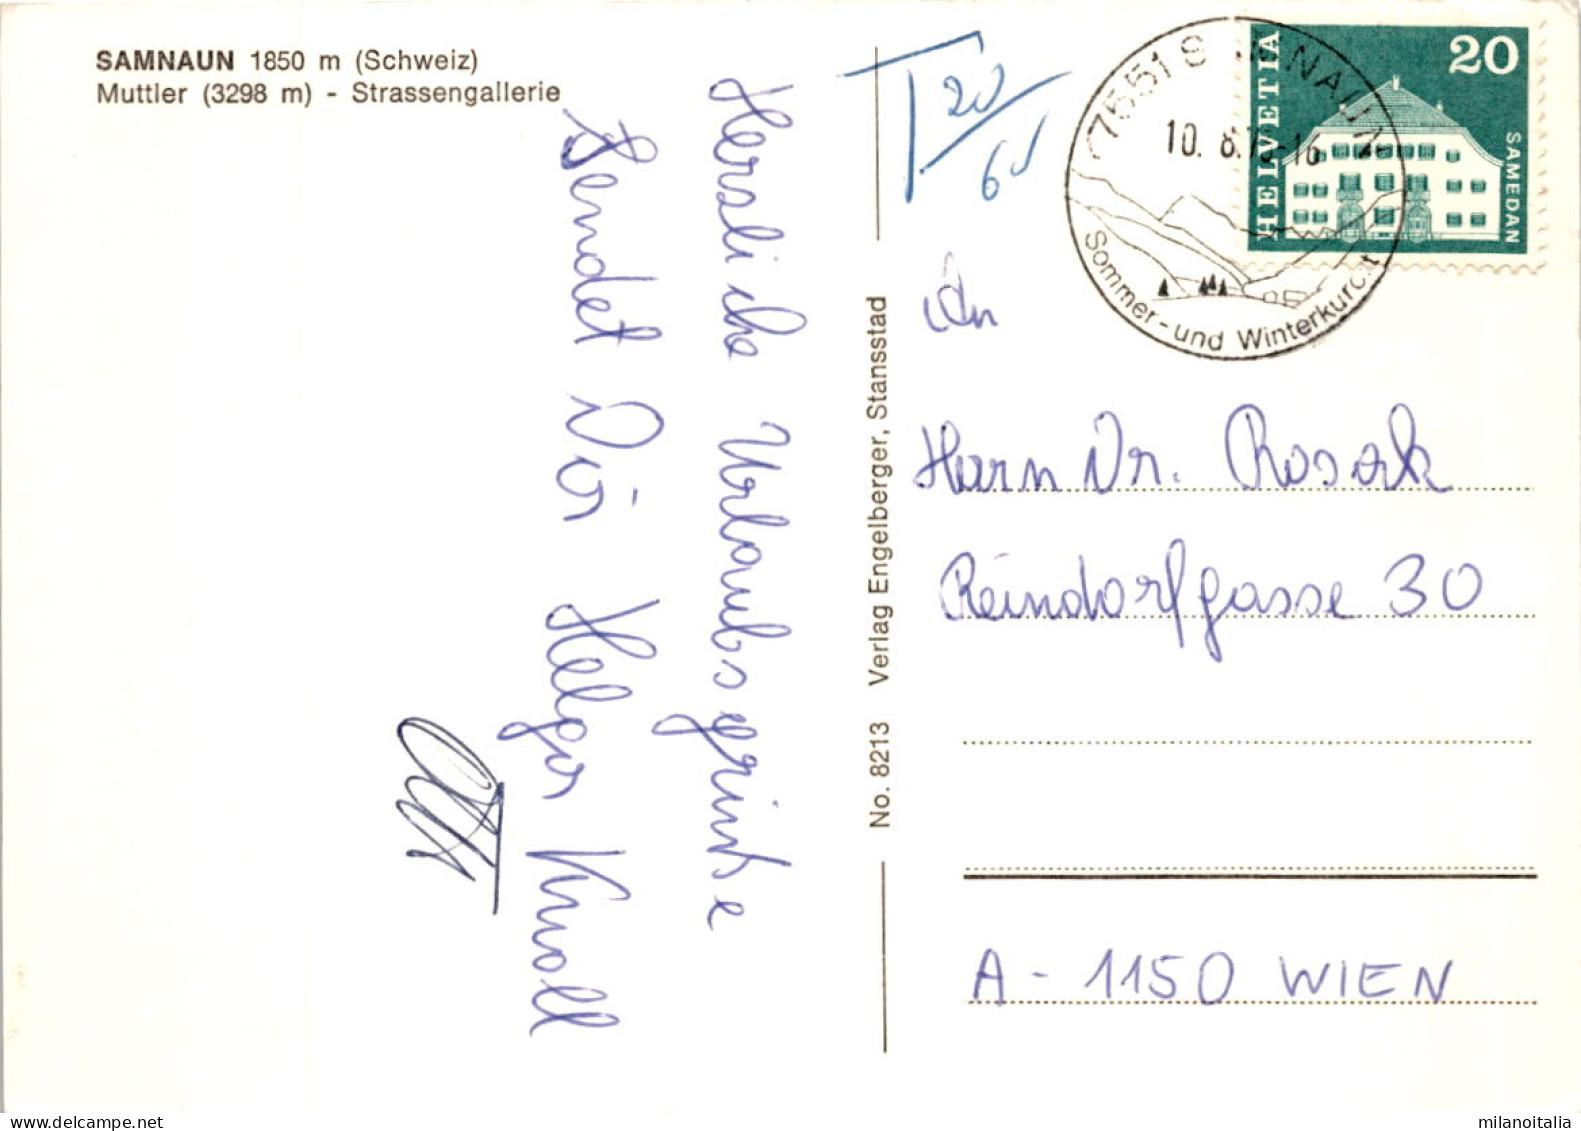 SAMNAUN 1850 m (Schweiz)
Muttler (3298 m) - Strassengallerie
Herzliche Urlaubsgrüße
Sendet Dir
Helga Knoll
No. 8213 Verlag Engelberger, Stansstad
T 20/60
7551 SAMNAUN
10. 8.7 -16
Sommer- und Winterkurort
HELVETIA
20
SAMEDAN
An
Herrn Dr. Rosak
Reindorfgasse 30
A - 1150 WIEN
milanoitalia